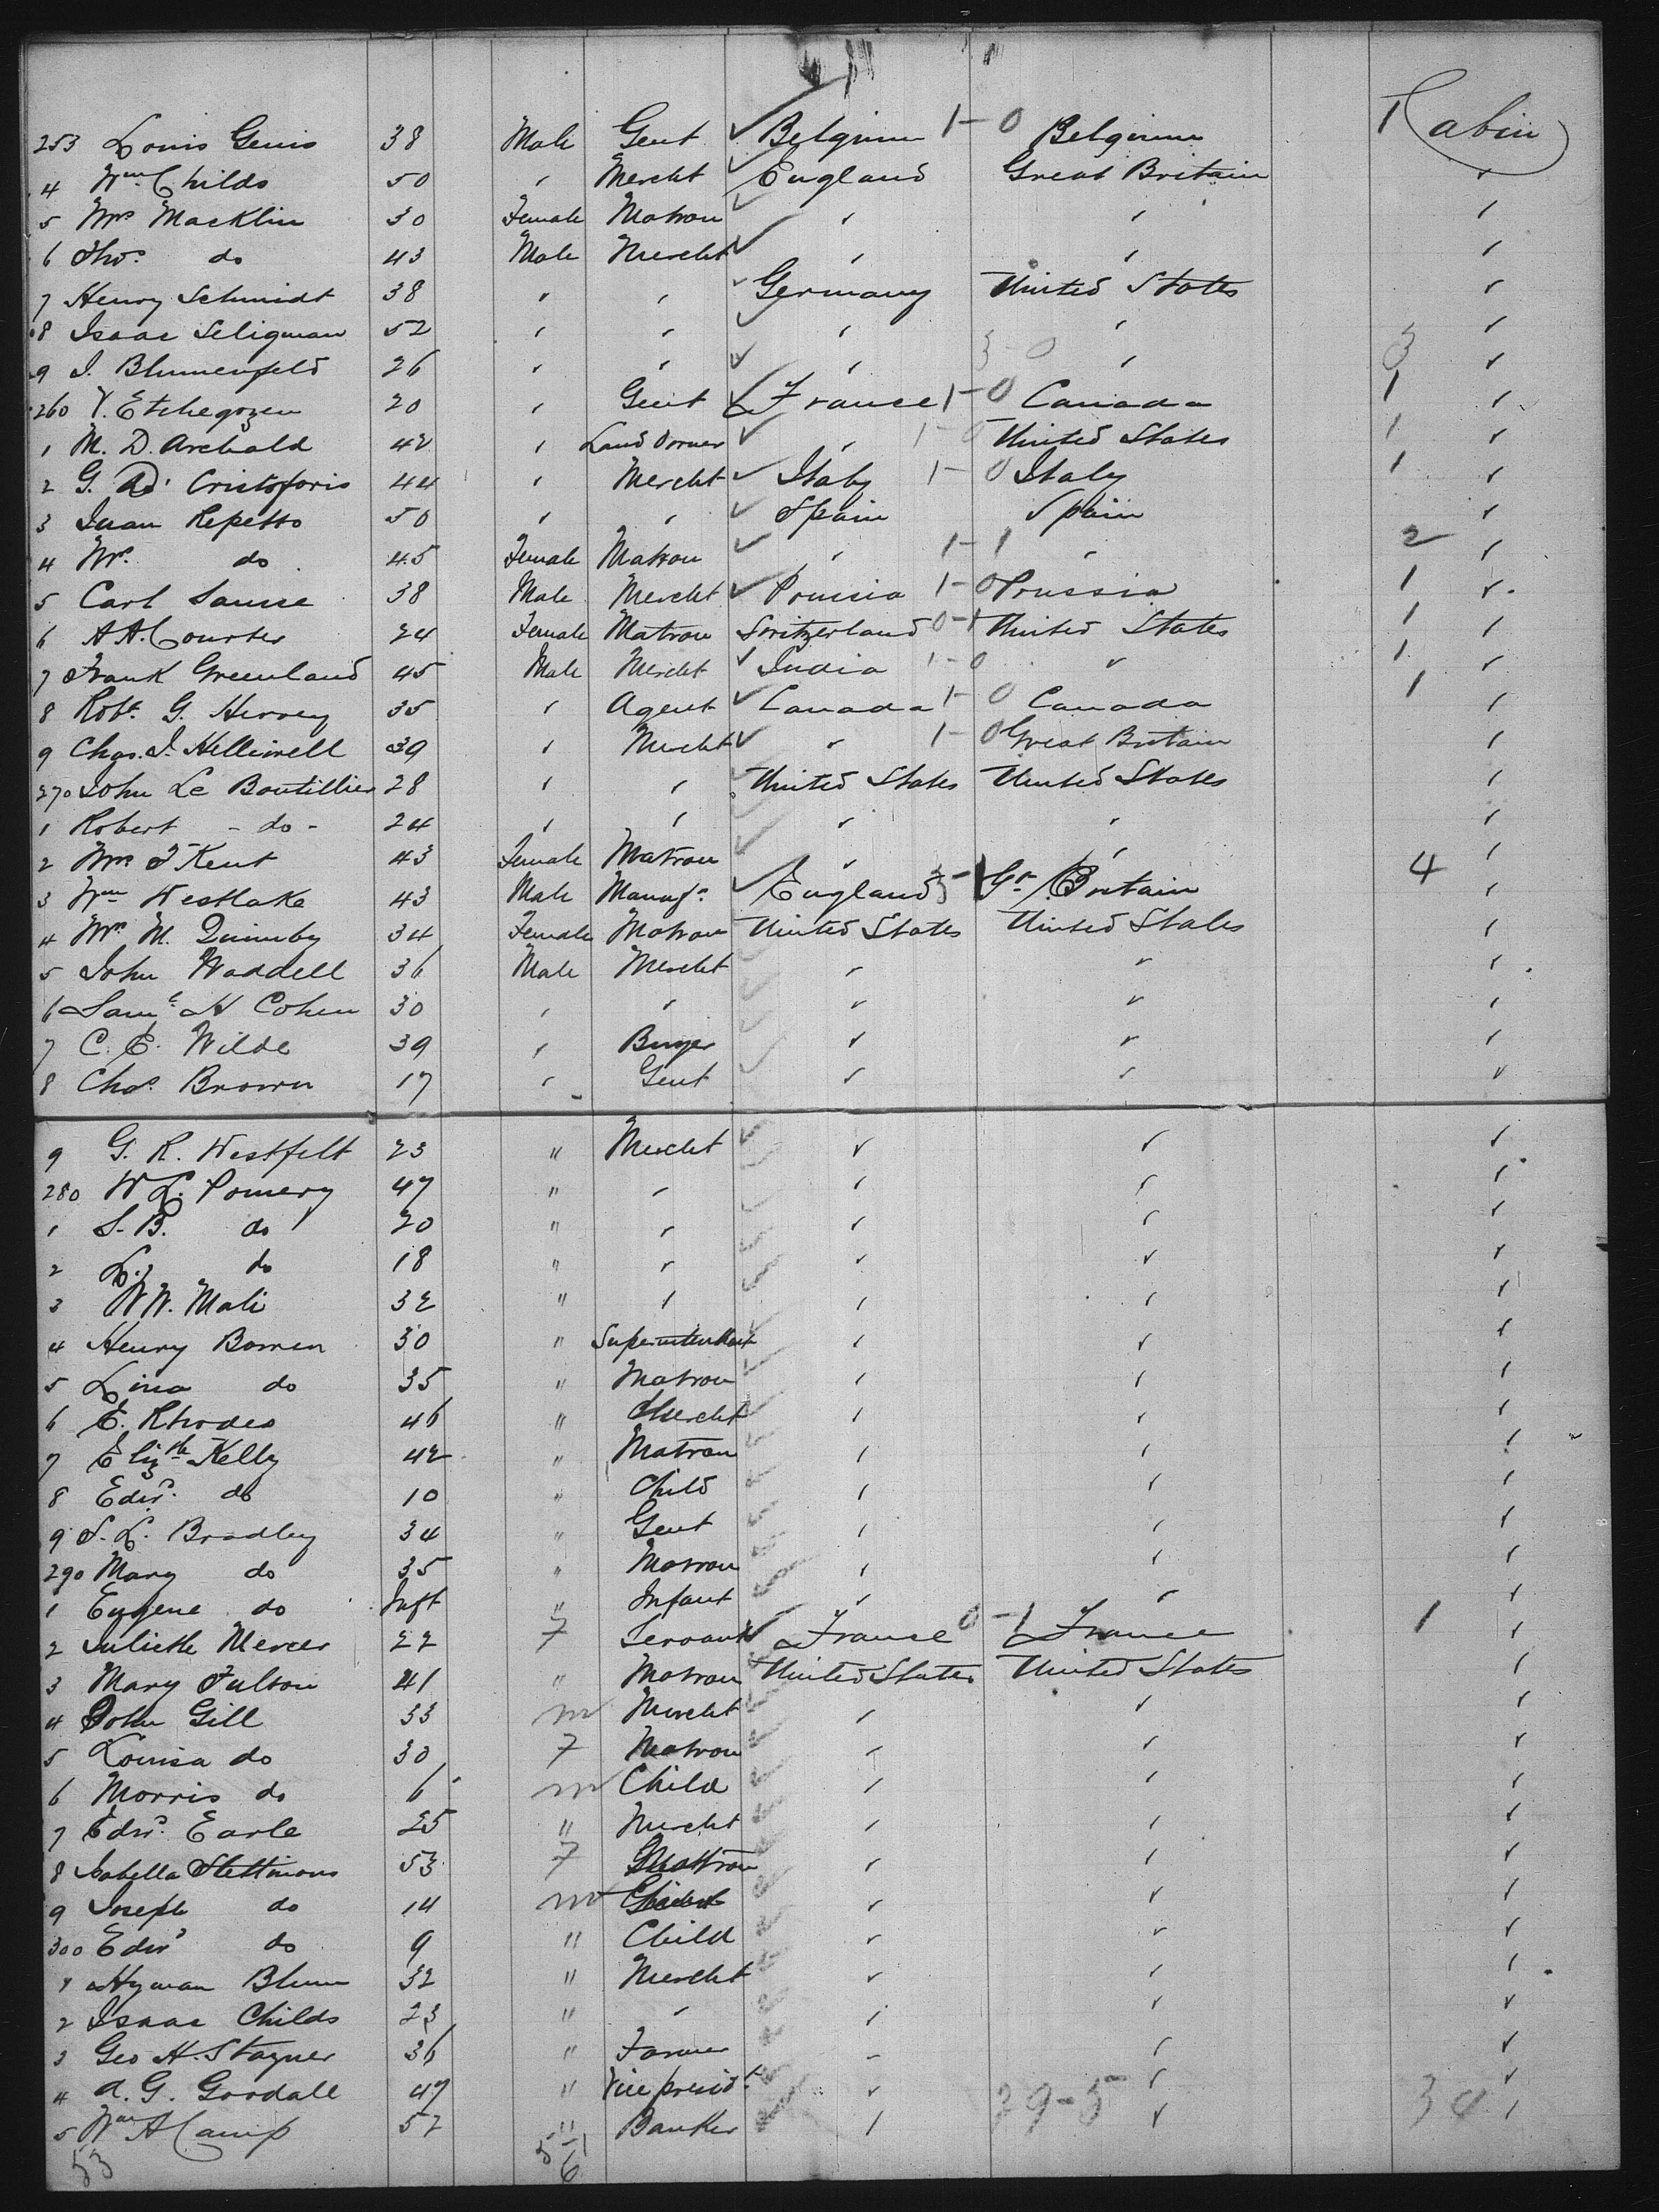 Cabin
253 Louis Genis 38 Male Gent Belgium 1-0 Belgium 1
4 Wm Childs 50 " Mercht England Great Britain "
5 Mrs Macklin 30 Female Matron " " "
6 Thos. do 43 Male Mercht " " "
7 Henry Schmidt 38 " " Germany United States "
8 Isaac Seligman 52 " " " " "
9 I. Blumenfeld 26 " " " 3-0 " 3 "
260 V. Etchegozen 20 " Gent France 1-0 Canada 1 "
1 M. D. Archald 42 " Land Owner " 1-0 United States 1 "
2 G. D. Cristoforis 44 " Mercht Italy 1-0 Italy 1 "
3 Juan Repetto 50 " " Spain Spain "
4 Mrs. do 45 Female Matron " 1-1 " 2 "
5 Carl Sausse 38 Male Mercht Prussia 1-0 Prussia 1 "
6 A A. Courter 24 Female Matron Switzerland 0-1 United States 1 "
7 Frank Greenland 45 Male Mercht India 1-0 " 1 "
8 Robt. G. Hervey 35 " Agent Canada 1-0 Canada 1 "
9 Chas. I. Helliwell 39 " Mercht " 1-0 Great Britain "
270 John Le Boutillier 28 " " United States United States "
1 Robert - do - 24 " " " " "
2 Mrs F Kent 43 Female Matron " " "
3 Wm Westlake 43 Male Manufr. England 3-1 Gt. Britain 4 "
4 Mrs M. Quimby 34 Female Matron United States United States "
5 John Waddell 36 Male Mercht " " "
6 Saml. H Cohen 30 " " " " "
7 C. E. Wilde 39 " Buyer " " "
8 Chas. Brown 17 " Gent " " "
9 G. R. Westfelt 23 " Mercht " " "
280 W L. Pomery 47 " " " " "
1 S. B. do 20 " " " " "
2 L. do 18 " " " " "
3 W W. Mali 32 " " " " "
4 Henry Bowen 30 " Superintendent " " "
5 Lina do 35 " Matron " " "
6 E. Rhodes 46 " Mercht " " "
7 Elizth Kelly 42 " Matron " " "
8 Edwd. do 10 " Child " " "
9 S. L. Bradley 34 " Gent " " "
290 Mary do 35 " Matron " " "
1 Eugene do Inft " Infant " " "
2 Juliette Mercer 22 F Servant France 0-1 France 1 "
3 Mary Fulton 41 " Matron United States United States "
4 John Gill 33 m Mercht " " "
5 Louisa do 30 F Matron " " "
6 Morris do 6 m Child " " "
7 Edwd. Earle 25 " Mercht " " "
8 Isabella Stettinous 53 F Matron " " "
9 Joseph do 14 m " " "
300 Edwd do 9 " Child " " "
1 Hyman Blum 32 " Mercht " " "
2 Isaac Childs 23 " " " " "
3 Geo H. Stayner 36 " Farmer " " "
4 A. G. Goodall 47 " Vice presidt. " " "
5 Wm A Camp 52 " Banker " 29-5 " 34 "
53